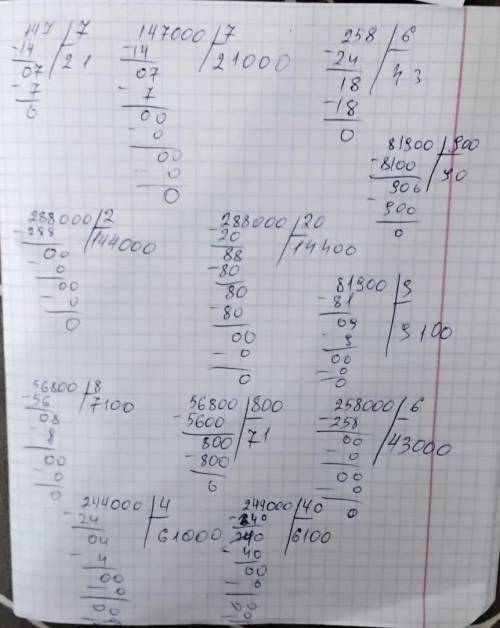 147 7
-14 21
07
-7
0
147000 7
-14 21000
07
-7
00
-0
00
-0
0
258 6
-24 43
18
-18
0
81900 900
-8100 90
900
-900
0
288000 2
-288 144000
00
-0
00
-0
0
288000 20
-20 14400
88
-80
80
-80
00
-0
0
81900 9
-81 9100
09
-9
00
-0
0
56800 8
-56 7100
08
-8
00
-0
0
56800 800
-5600 71
800
-800
0
258000 6
-258 43000
00
-0
00
-0
0
244000 4
-24 61000
04
-4
00
-0
00
244000 40
-240 6100
40
-40
00
-0
00